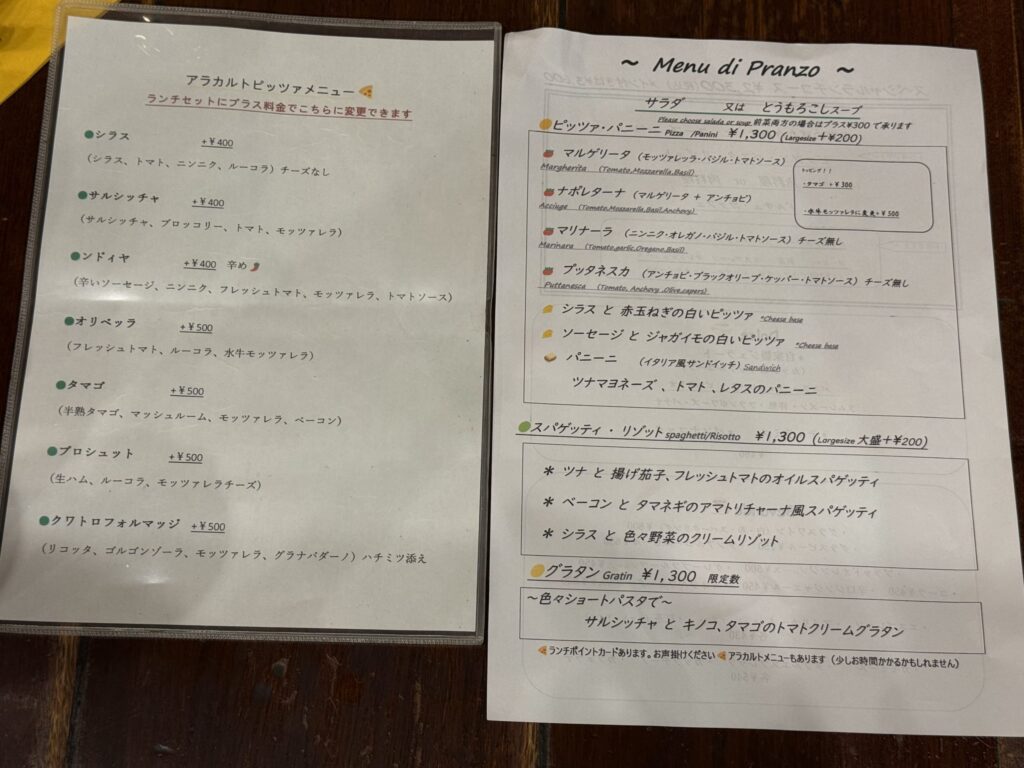 アラカルトピッツァメニュー🍕
ランチセットにプラス料金でこちらに変更できます
●シラス +¥400
（シラス、トマト、ニンニク、ルーコラ）チーズなし
●サルシッチャ +¥400
（サルシッチャ、ブロッコリー、トマト、モッツァレラ）
●ンドィヤ +¥400 辛め🌶
（辛いソーセージ、ニンニク、フレッシュトマト、モッツァレラ、トマトソース）
●オリベッラ +¥500
（フレッシュトマト、ルーコラ、水牛モッツァレラ）
●タマゴ +¥500
（半熟タマゴ、マッシュルーム、モッツァレラ、ベーコン）
●プロシュット +¥500
（生ハム、ルーコラ、モッツァレラチーズ）
●クワトロフォルマッジ +¥500
（リコッタ、ゴルゴンゾーラ、モッツァレラ、グラナパダーノ）ハチミツ添え
～ Menu di Pranzo ～
サラダ 又は とうもろこしスープ
Please choose salada or soup 前菜両方の場合はプラス¥300で承ります
ピッツァ・パニーニ Pizza /Panini ¥1,300 (Largesize+¥200)
🍅 マルゲリータ （モッツァレッラ・バジル・トマトソース）
Margherita (Tomato,Mozzarella,Basil)
🍅ナポレターナ （マルゲリータ + アンチョビ）
Acciuge (Tomato,Mozzarella,Basil,Anchovy)
🍅マリナーラ （ニンニク・オレガノ・バジル・トマトソース） チーズ無し
Marinara (Tomato,garlic,Oregano,Basil)
🍅 プッタネスカ （アンチョビ・ブラックオリーブ・ケッパー・トマトソース） チーズ無し
Puttanesca (Tomato, Anchovy ,Olive,capers)
トッピング！！
・タマゴ +¥300
・水牛モッツァレラに変更+¥500
🧀 シラス と 赤玉ねぎの白いピッツァ *Cheese base
🧀 ソーセージ と ジャガイモの白いピッツァ *Cheese base
🥪 パニーニ （イタリア風サンドイッチ) Sandwich
ツナマヨネーズ 、トマト 、レタスのパニーニ
●スパゲッティ ・ リゾット spaghetti/Risotto ¥1,300 (Largesize 大盛+¥200)
＊ ツナ と 揚げ茄子、フレッシュトマトのオイルスパゲッティ
＊ ベーコン と タマネギのアマトリチャーナ風スパゲッティ
＊ シラス と 色々野菜のクリームリゾット
グラタン Gratin ¥1,300 限定数
～色々ショートパスタで～
サルシッチャ と キノコ、タマゴのトマトクリームグラタン
🍕ランチポイントカードあります。お声掛けください🍕アラカルトメニューもあります（少しお時間かかるかもしれません）